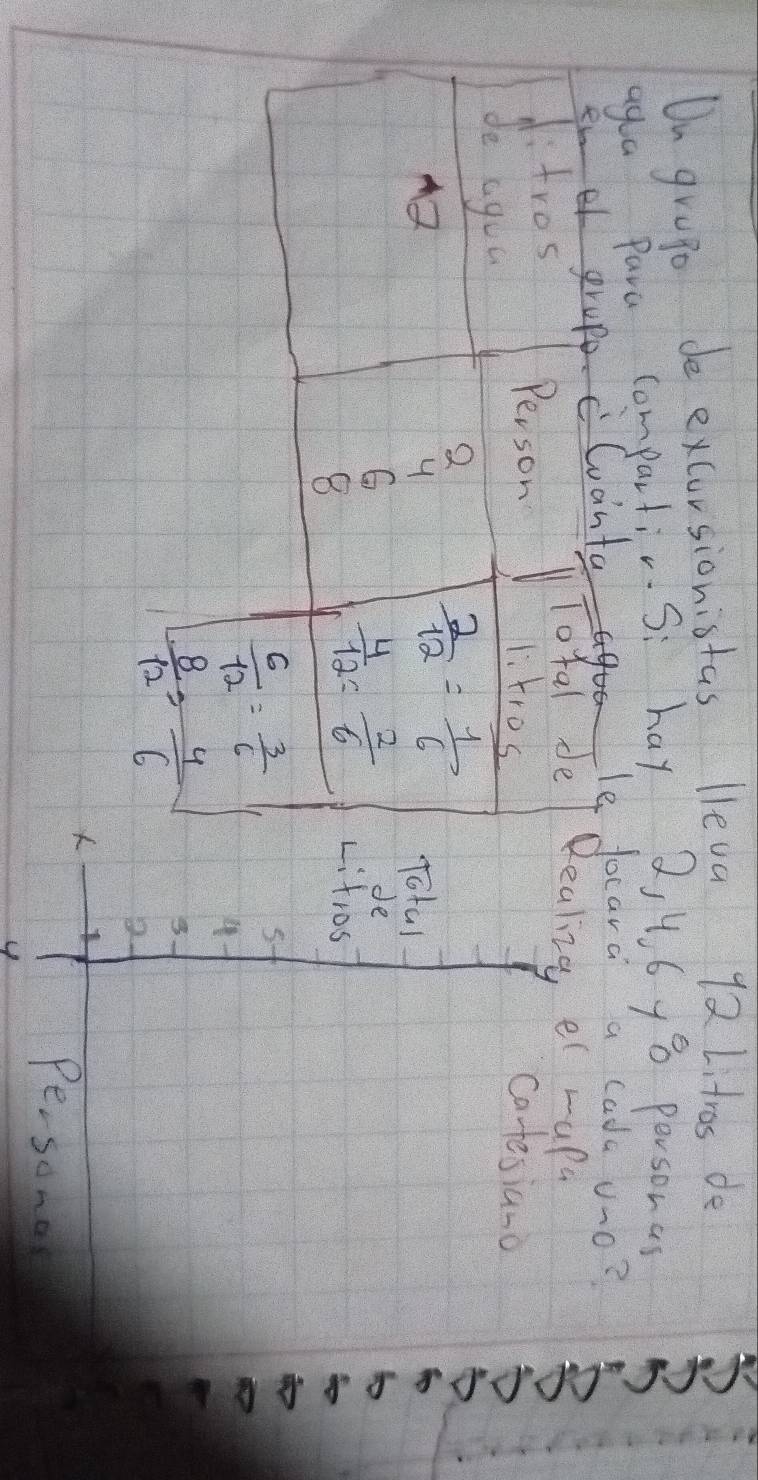 Un grupo de excursionistas lleva 12 Litros de
agua Para compartir. Si hay 2, 4, 6 y 8 personas
en el grupo. ¿Cuánta agua le tocará a cada uno?
Realiza el mapa
Cartesiano
Litros
de agua
Person
Total de
litros
12
2
4
6
8
2/12 = 1/6
4/12 = 2/6
6/12 = 3/6
8/12 = 4/6
y
Total
de
Litros
5
4
3
2
1
x
Personas
y